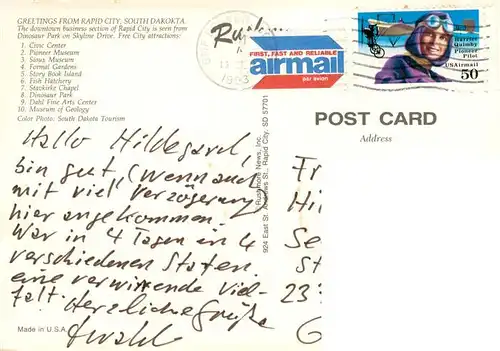 GREETINGS FROM RAPID CITY, SOUTH DAKOKTA.
The downtown business section of Rapid City is seen from
Dinosaur Park on Skyline Drive. Free City attractions:
1. Civic Center
2. Pioneer Museum
3. Sioux Museum
4. Formal Gardens
5. Story Book Island
6. Fish Hatchery
7. Stavkirke Chapel
8. Dinosaur Park
9. Dahl Fine Arts Center
10. Museum of Geology
Color Photo: South Dakota Tourism
1993
FIRST, FAST AND RELIABLE
airmail
par avion
Harriet
Quimby
Pioneer
Pilot
USAirmail
50
POST CARD
Address
Hallo Hildegard,
bin gut (wenn auch
mit viel Verzögerung
hier angekommen.
War in 4 Tagen in 4
verschiedenen Staten.
eine verwirrende Viel-
falt. Herzliche Grüße
Ewald
Rushmore News, Inc.
924 East St. Andrews St., Rapid City, SD 57701
Fr
Hil
Se
St
23
6
Made in U.S.A.